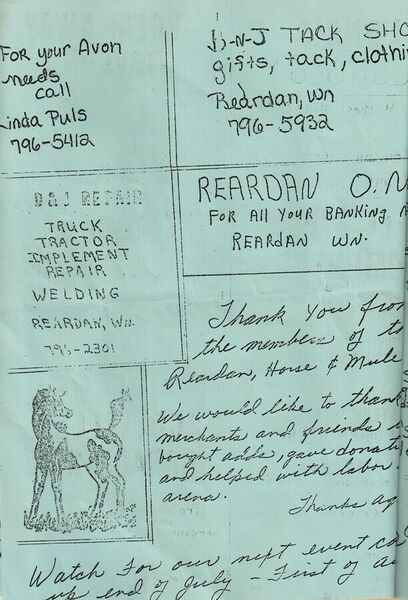 For your Avon
needs
call
inda Puls
796-5412
D-N-J TACK SHO
gifts, tack, clothin
Reardan, Wn
796-5932
D&J REPAIR
TRUCK
TRACTOR
IMPLEMENT
REPAIR
WELDING
REARDAN, WN.
796-2301
REARDAN O.N
FOR All YOUR BANKING
REARdAN WN.
Thank You from
the members of t
Reardan, Horse & Mule
We would like to thank
merchants and friends
bought adds, gave donati
and helped with labor
arena.
Thanks ag
Watch for our next event co
up end of July - First of Au